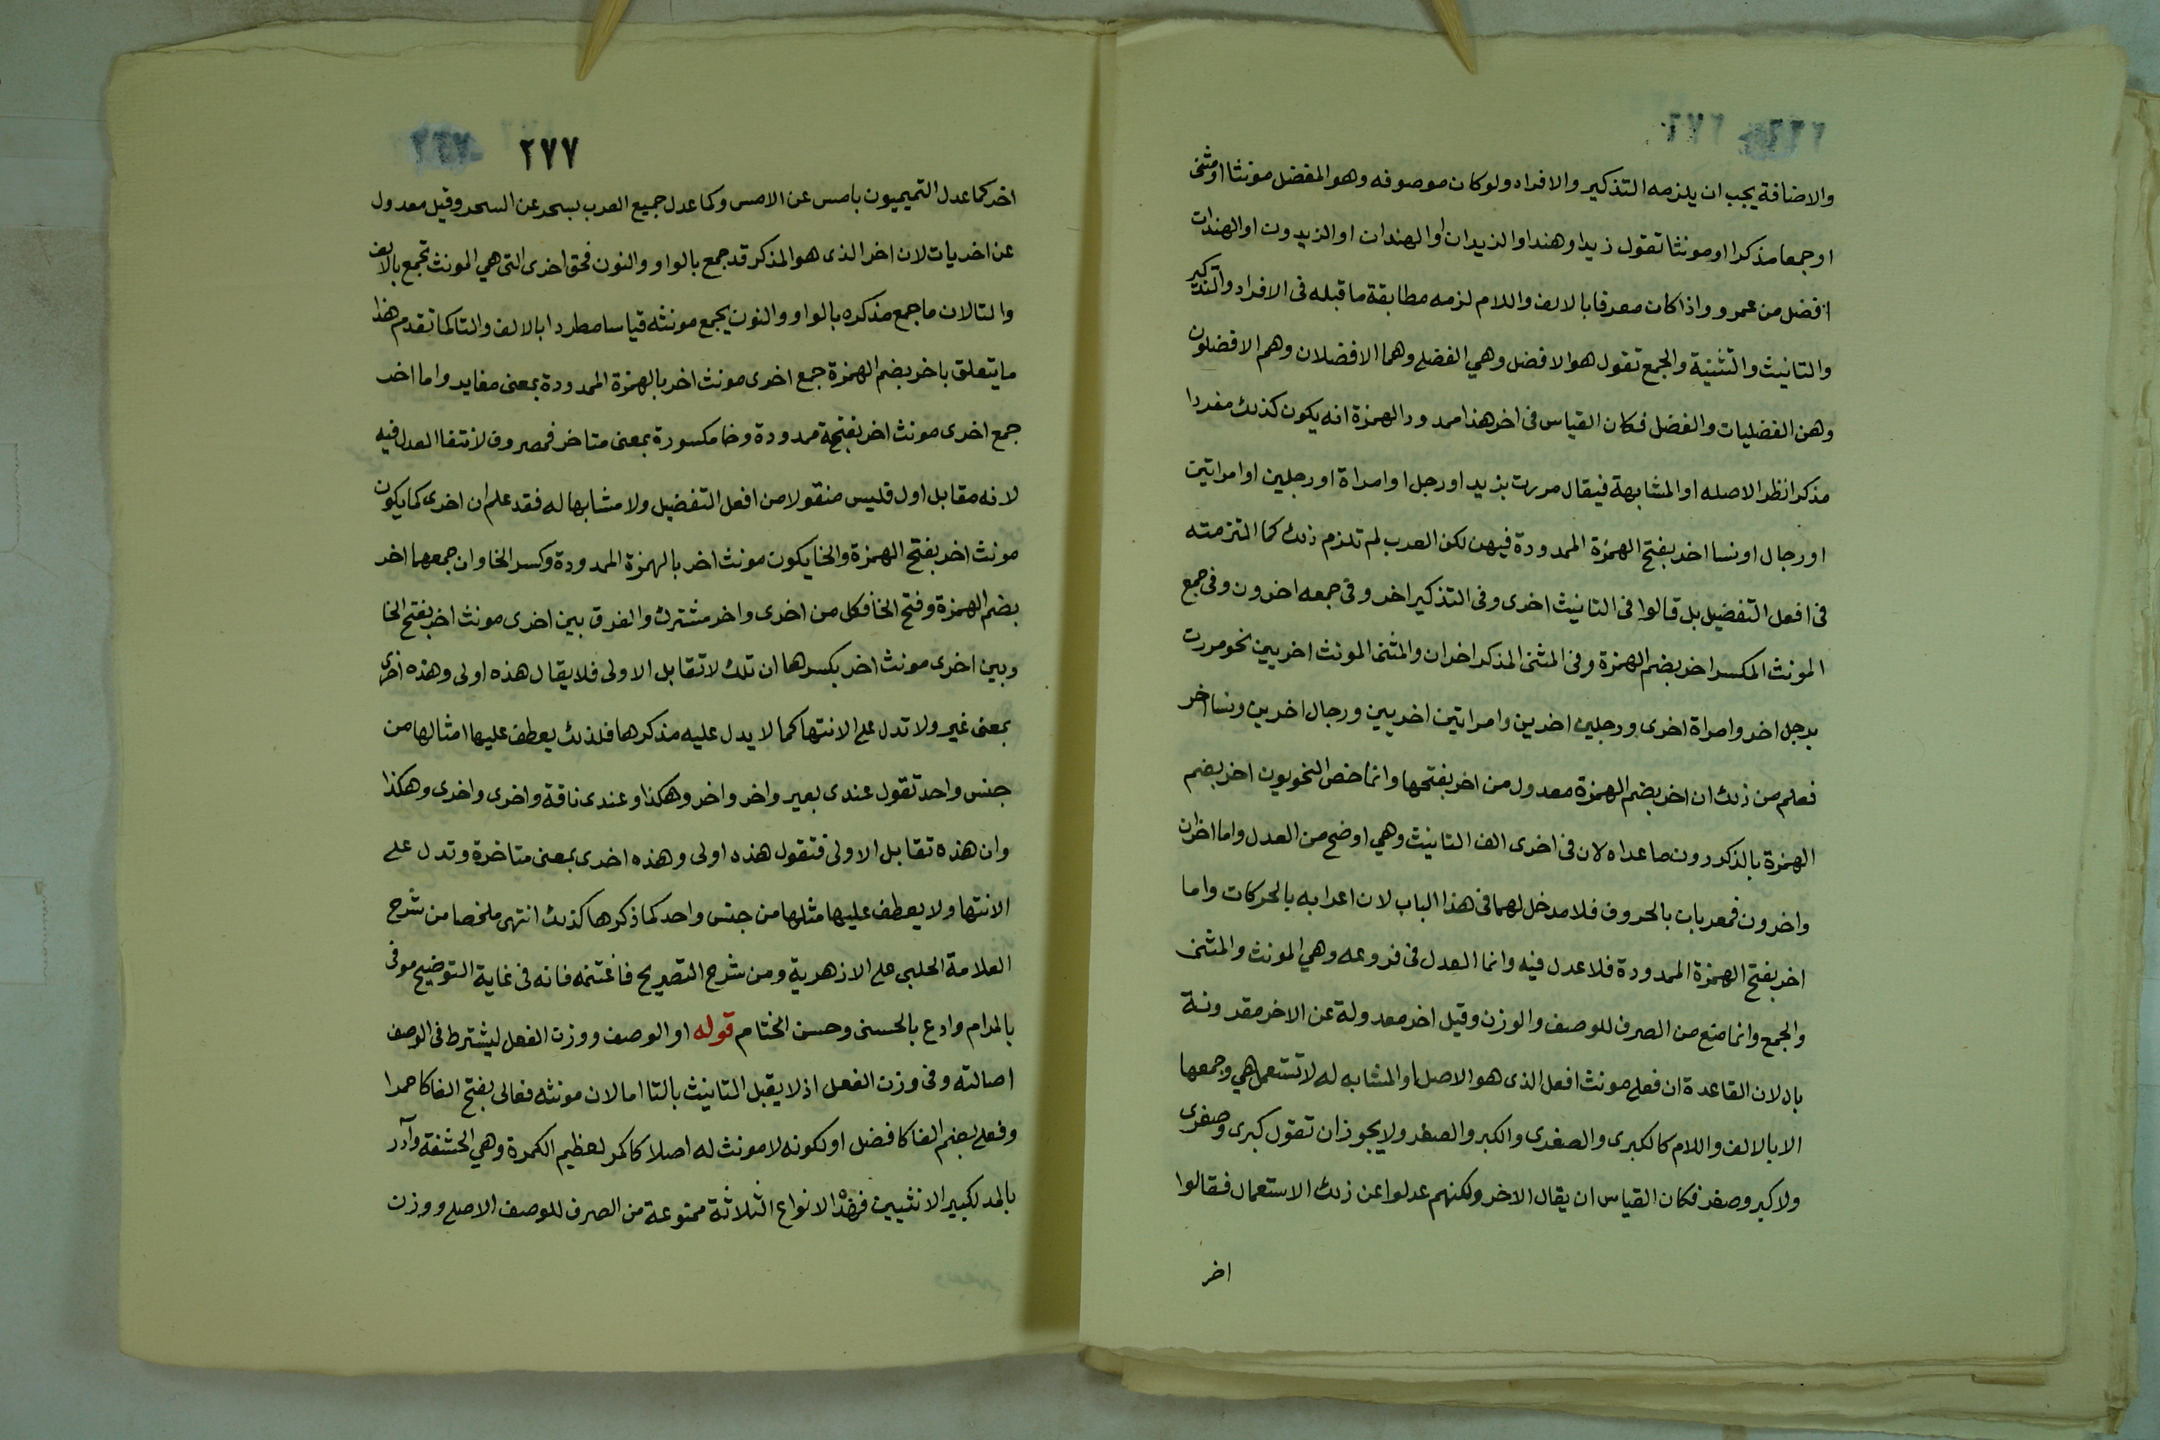 ٢٧٦
والاضافة يجب ان يلزمه التذكير والافراد ولو كان موصوفه وهو المفضل مونثا او مثنى
او جمعا مذكرا او مونثا تقول زيدا وهندا والزيدان او الهندان او الزيدون او الهندات
افضل من عمرو واذا كان معرفا بالالف واللام لزمه مطابقة ما قبله فى الافراد والتذكير
والتانيث والتثنية والجمع تقول هو الافضل وهي الفضلے وهما الافضلان وهم الافضلون
وهن الفضليات والفضل فكان القياس فى اخر هذا ممدود الهمزة انه يكون كذلك مفردا
مذكرا نظرا لاصله او المشابهة فيقال مررت بزيد او رجل او امراة او رجلين او امراتين
او رجال او نسا اخر بفتح الهمزة الممدودة فيهن لكن العرب لم تلزم ذلك كما التزمته
فى افعل التفضيل بل قالوا فى التانيث اخرى وفى التذكير اخر وفى جمعه اخرون وفى جمع
المونث المكسر اخر بضم الهمزة وفى المثنى المذكر اخران والمثنى المونث اخريين نحو مررت
برجل اخر وامراة اخرى ورجلين اخرين وامراتين اخريين ورجال اخرين ونسا اخر
فعلم من ذلك ان اخر بضم الهمزة معدول من اخر بفتحها وانما خص النحويون اخر بضم
الهمزة بالذكر دون ما عداه لان فى اخرى الف التانيث وهي اوضح من العدل واما اخران
واخرون فمعربات بالحروف فلا مدخل لهما فى هذا الباب لان اعرابه بالحركات واما
اخر بفتح الهمزة الممدودة فلا عدل فيه وانما العدل فى فروعه وهي المونث والمثنى
والجمع وانما منع من الصرف للوصف والوزن وقيل اخر معدولة عن الاخر مقرونة
بال لان القاعدة ان فعلے مونث افعل الذى هو الاصل او المشابه له لا تستعمل هي وجمعها
الا بالالف واللام كالكبرى والصغرى والكبر والصغر ولا يجوز ان تقول كبرى وصغرى
ولا كبر وصغر فكان القياس ان يقال الاخر ولكنهم عدلوا عن ذلك الاستعمال فقالوا
اخر
٢٧٧
اخر كما عدل التميميون بامس عن الامس وكما عدل جميع العرب بسحر عن السحر وقيل معدول
عن اخريات لان اخر الذى هو المذكر قد جمع بالواو والنون فحق اخرى التى هي المونث تجمع بالالف
والتا لان ما جمع مذكره بالواو والنون يجمع مونثه قياسا مطردا بالالف والتا كما تقدم هذا
ما يتعلق باخر بضم الهمزة جمع اخرى مونث اخر بالهمزة الممدودة بمعنى مغاير واما اخر
جمع اخرى مونث اخر بفتحة ممدودة وخا مكسورة بمعنى متاخر فمصروف لانتفا العدل فيه
لانه مقابل اول فليس منقولا من افعل التفضيل ولا مشابها له فقد علم ان اخرى كما يكون
مونث اخر بفتح الهمزة والخا يكون مونث اخر بالهمزة الممدودة وكسر الخا وان جمعهما اخر
بضم الهمزة وفتح الخا فكل من اخرى واخر مشترك والفرق بين اخرى مونث اخر بفتح الخا
وبين اخرى مونث اخر بكسرها ان تلك لا تقابل الاولى فلا يقال هذه اولى وهذه اخرى
بمعنى غير ولا تدل علے الانتها كما لا يدل عليه مذكرها فلذلك يعطف عليها امثالها من
جنس واحد تقول عندى بعير واخر واخر وهكذا وعندى ناقة واخرى واخرى وهكذا
وان هذه تقابل الاولى فتقول هذه اولى وهذه اخرى بمعنى متاخرة وتدل علے
الانتها ولا يعطف عليها مثلها من جنس واحد كما ذكرها كذلك انتهى ملخصا من شرح
العلامة الحلبى علے الازهرية ومن شرح التصريح فاغتنمه فانه فى غاية التوضيح موفى
بالمرام وادع بالحسنى وحسن الختام قوله او الوصف ووزن الفعل ليشترط فى الوصف
اصالته وفى وزن الفعل اذ لا يقبل التانيث بالتا اما لان مونثه فعالى بفتح الفا كاحمرا
وفعلے بضم الفا كافضل او لكونه لا مونث له اصلا كاكمر لعظيم الكمرة وهي الحشفة وآدر
بالمد لكبير الانثيين فهذه الانواع الثلاثة ممنوعة من الصرف للوصف الاصلے ووزن